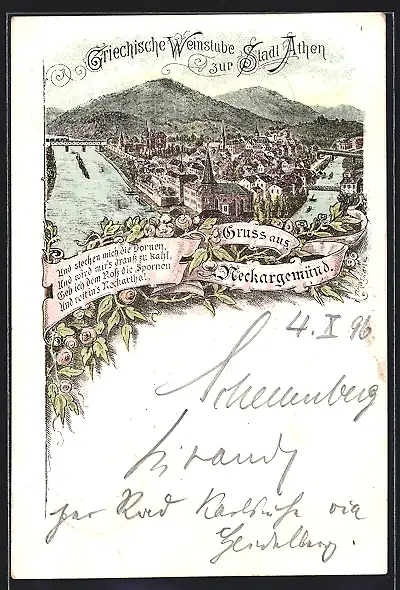 Griechische Weinstube
zur Stadt Athen
Gruss aus
Neckargemünd.
Und stechen mich die Dornen,
Und wird mir's drauß zu kahl,
Geb ich dem Roß die Spornen
Und reit in's Neckarthal
4. X 96
Schellenberg
per Rad Karlsruhe via
Heidelberg.